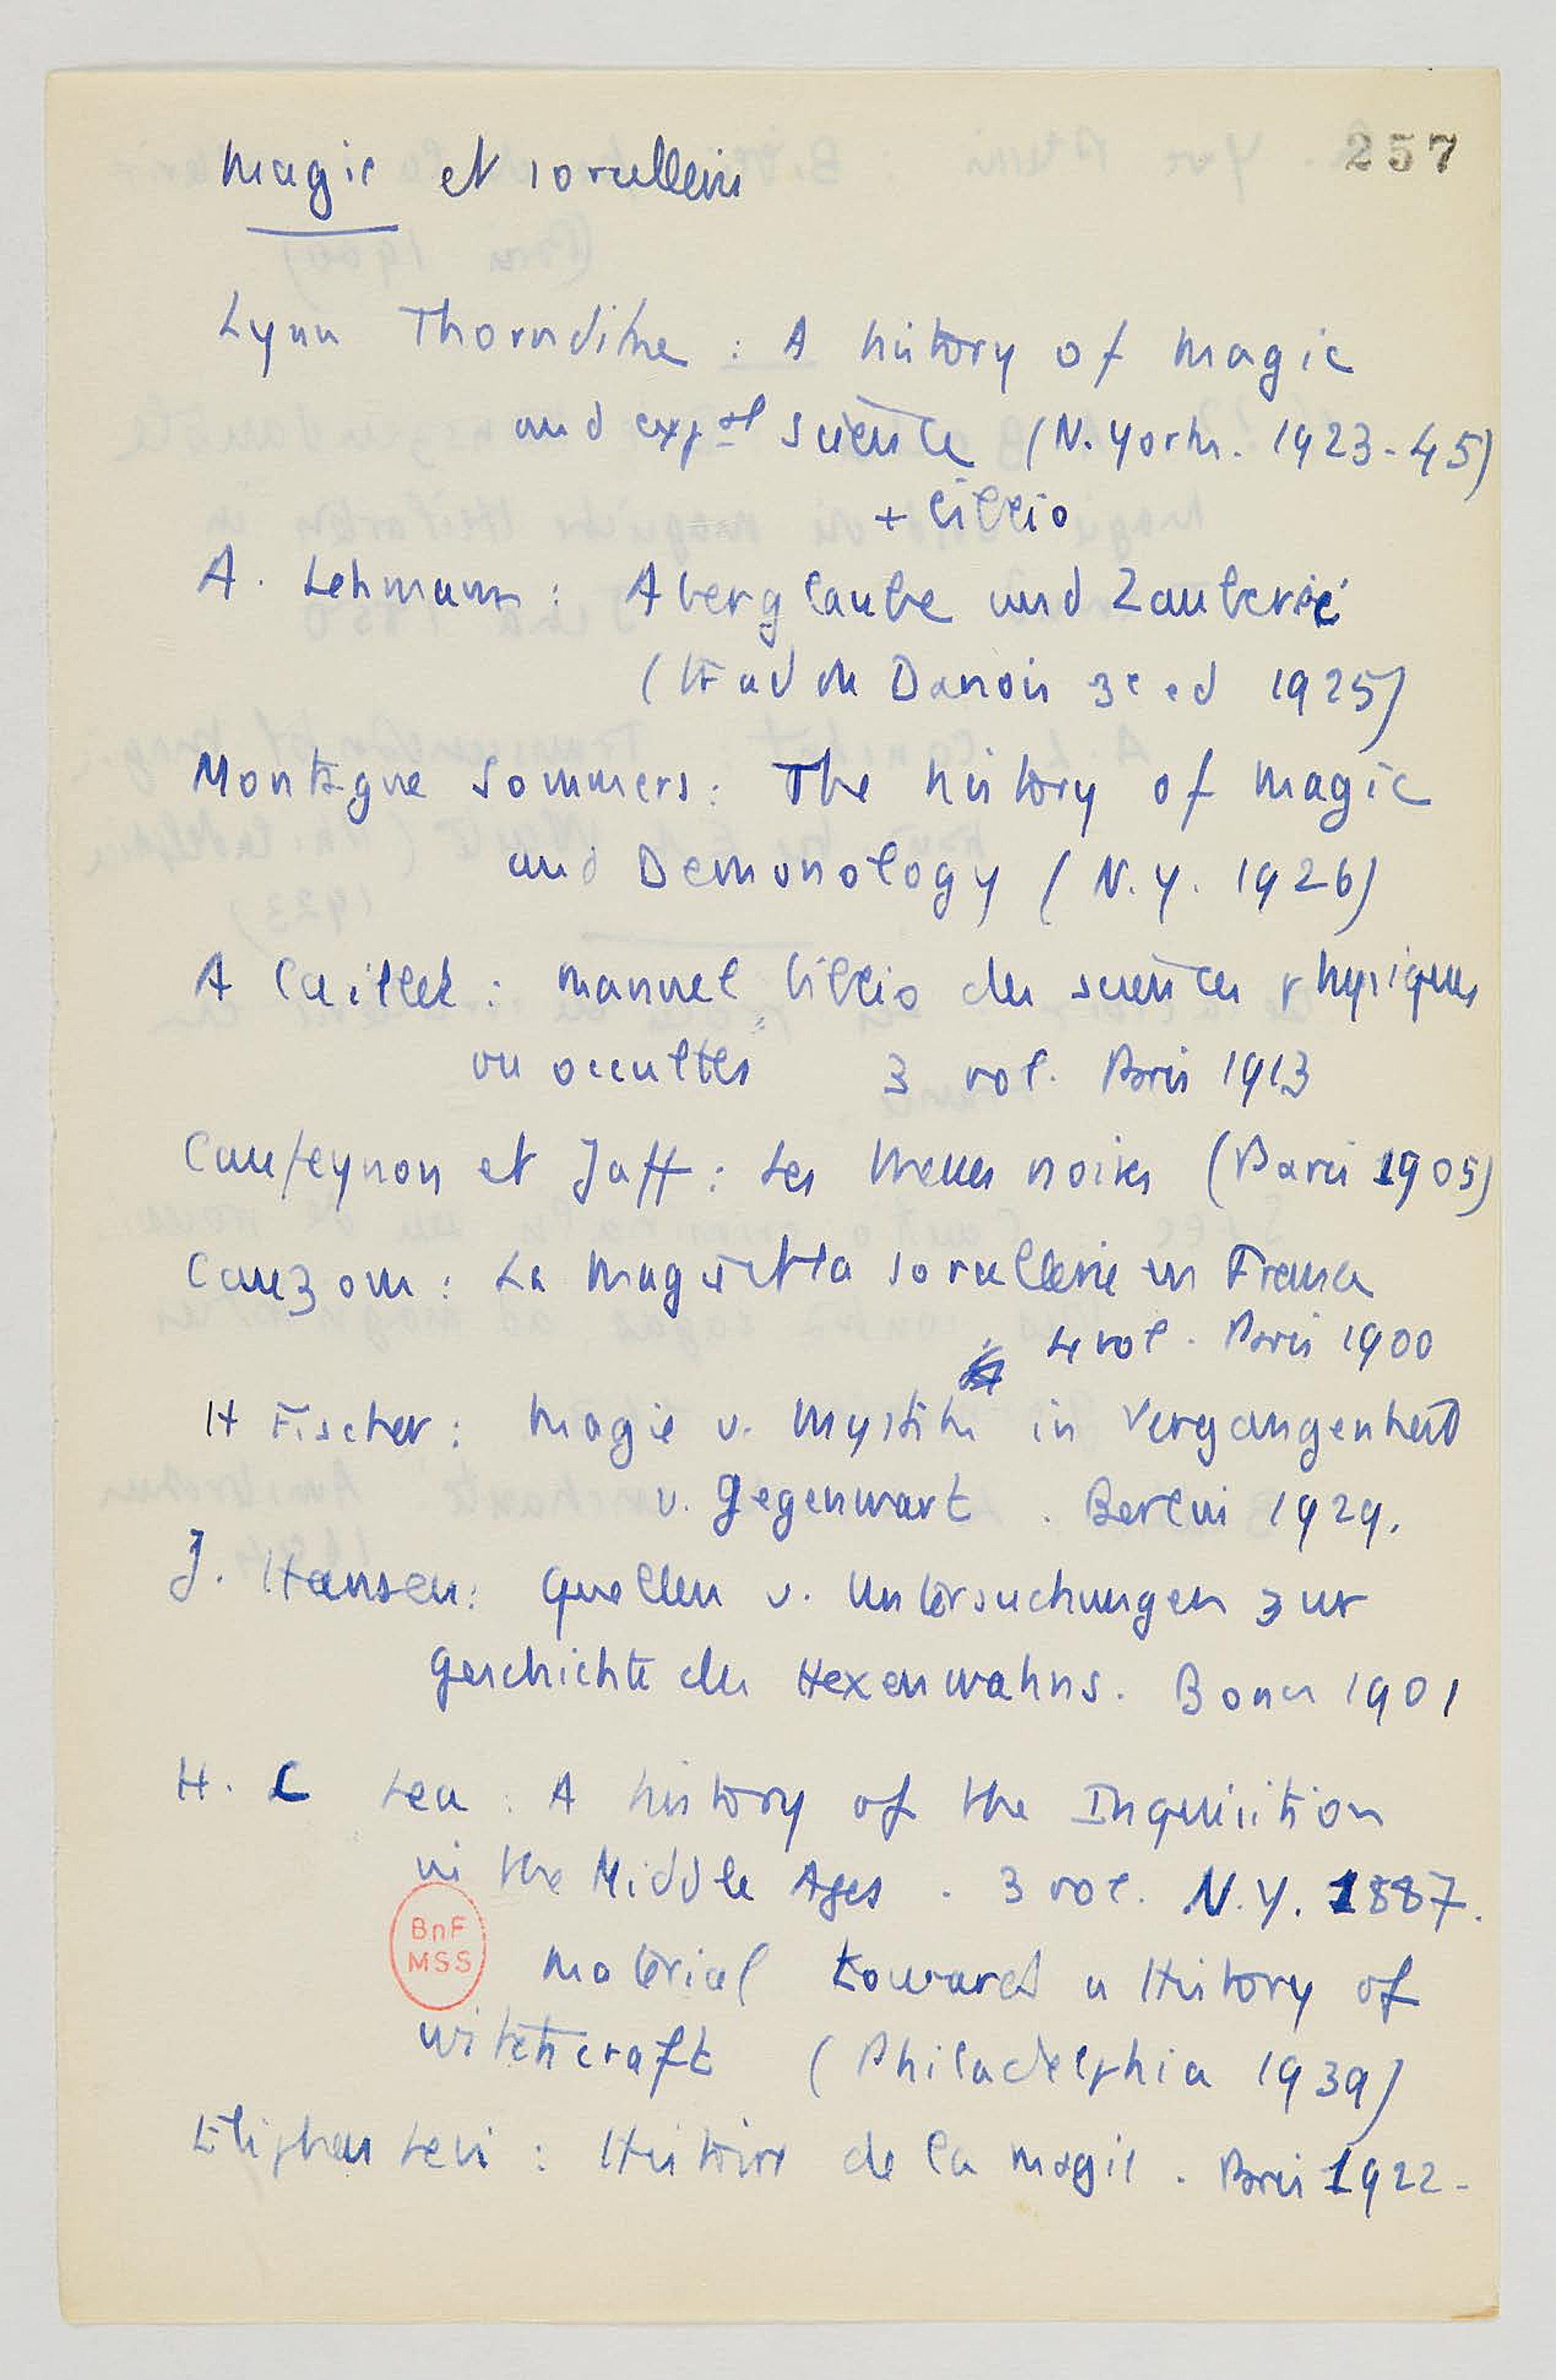 257
Magie et sorcellerie
Lynn Thorndike : A history of magic
and exp^al science (N. York. 1923-45)
+ biblio
A. Lehmann : Aberglaube und Zauberei
(trad du Danois 3e ed 1925)
Montague Sommers : The history of magic
and Demonology (N.Y. 1926)
A Caillet : manuel biblio des sciences physiques
ou occultes 3 vol. Paris 1913
Caufeynon et Jaff : Les Messes noires (Paris 1905)
Cauzons : La Magie et la sorcellerie en France
4 vol. Paris 1900
H Fischer : Magie u. Mystik in Vergangenheit
u. Gegenwart. Berlin 1929.
J. Hansen : Quellen u. Untersuchungen zur
Geschichte des Hexenwahns. Bonn 1901
H. C Lea : A history of the Inquisition
in the Middle Ages. 3 vol. N.Y. 1887.
BnF
MSS
Material toward a History of
witchcraft (Philadelphia 1939)
Eliphas Levi : Histoire de la magie. Paris 1922-